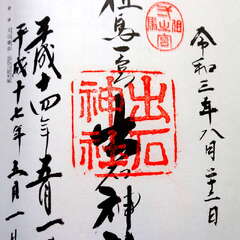 令和三年八月二十一日
但馬
弌之宮
但馬一宮 出石神社
出石
神社
平成十四年五月一
平成十七年三月一日